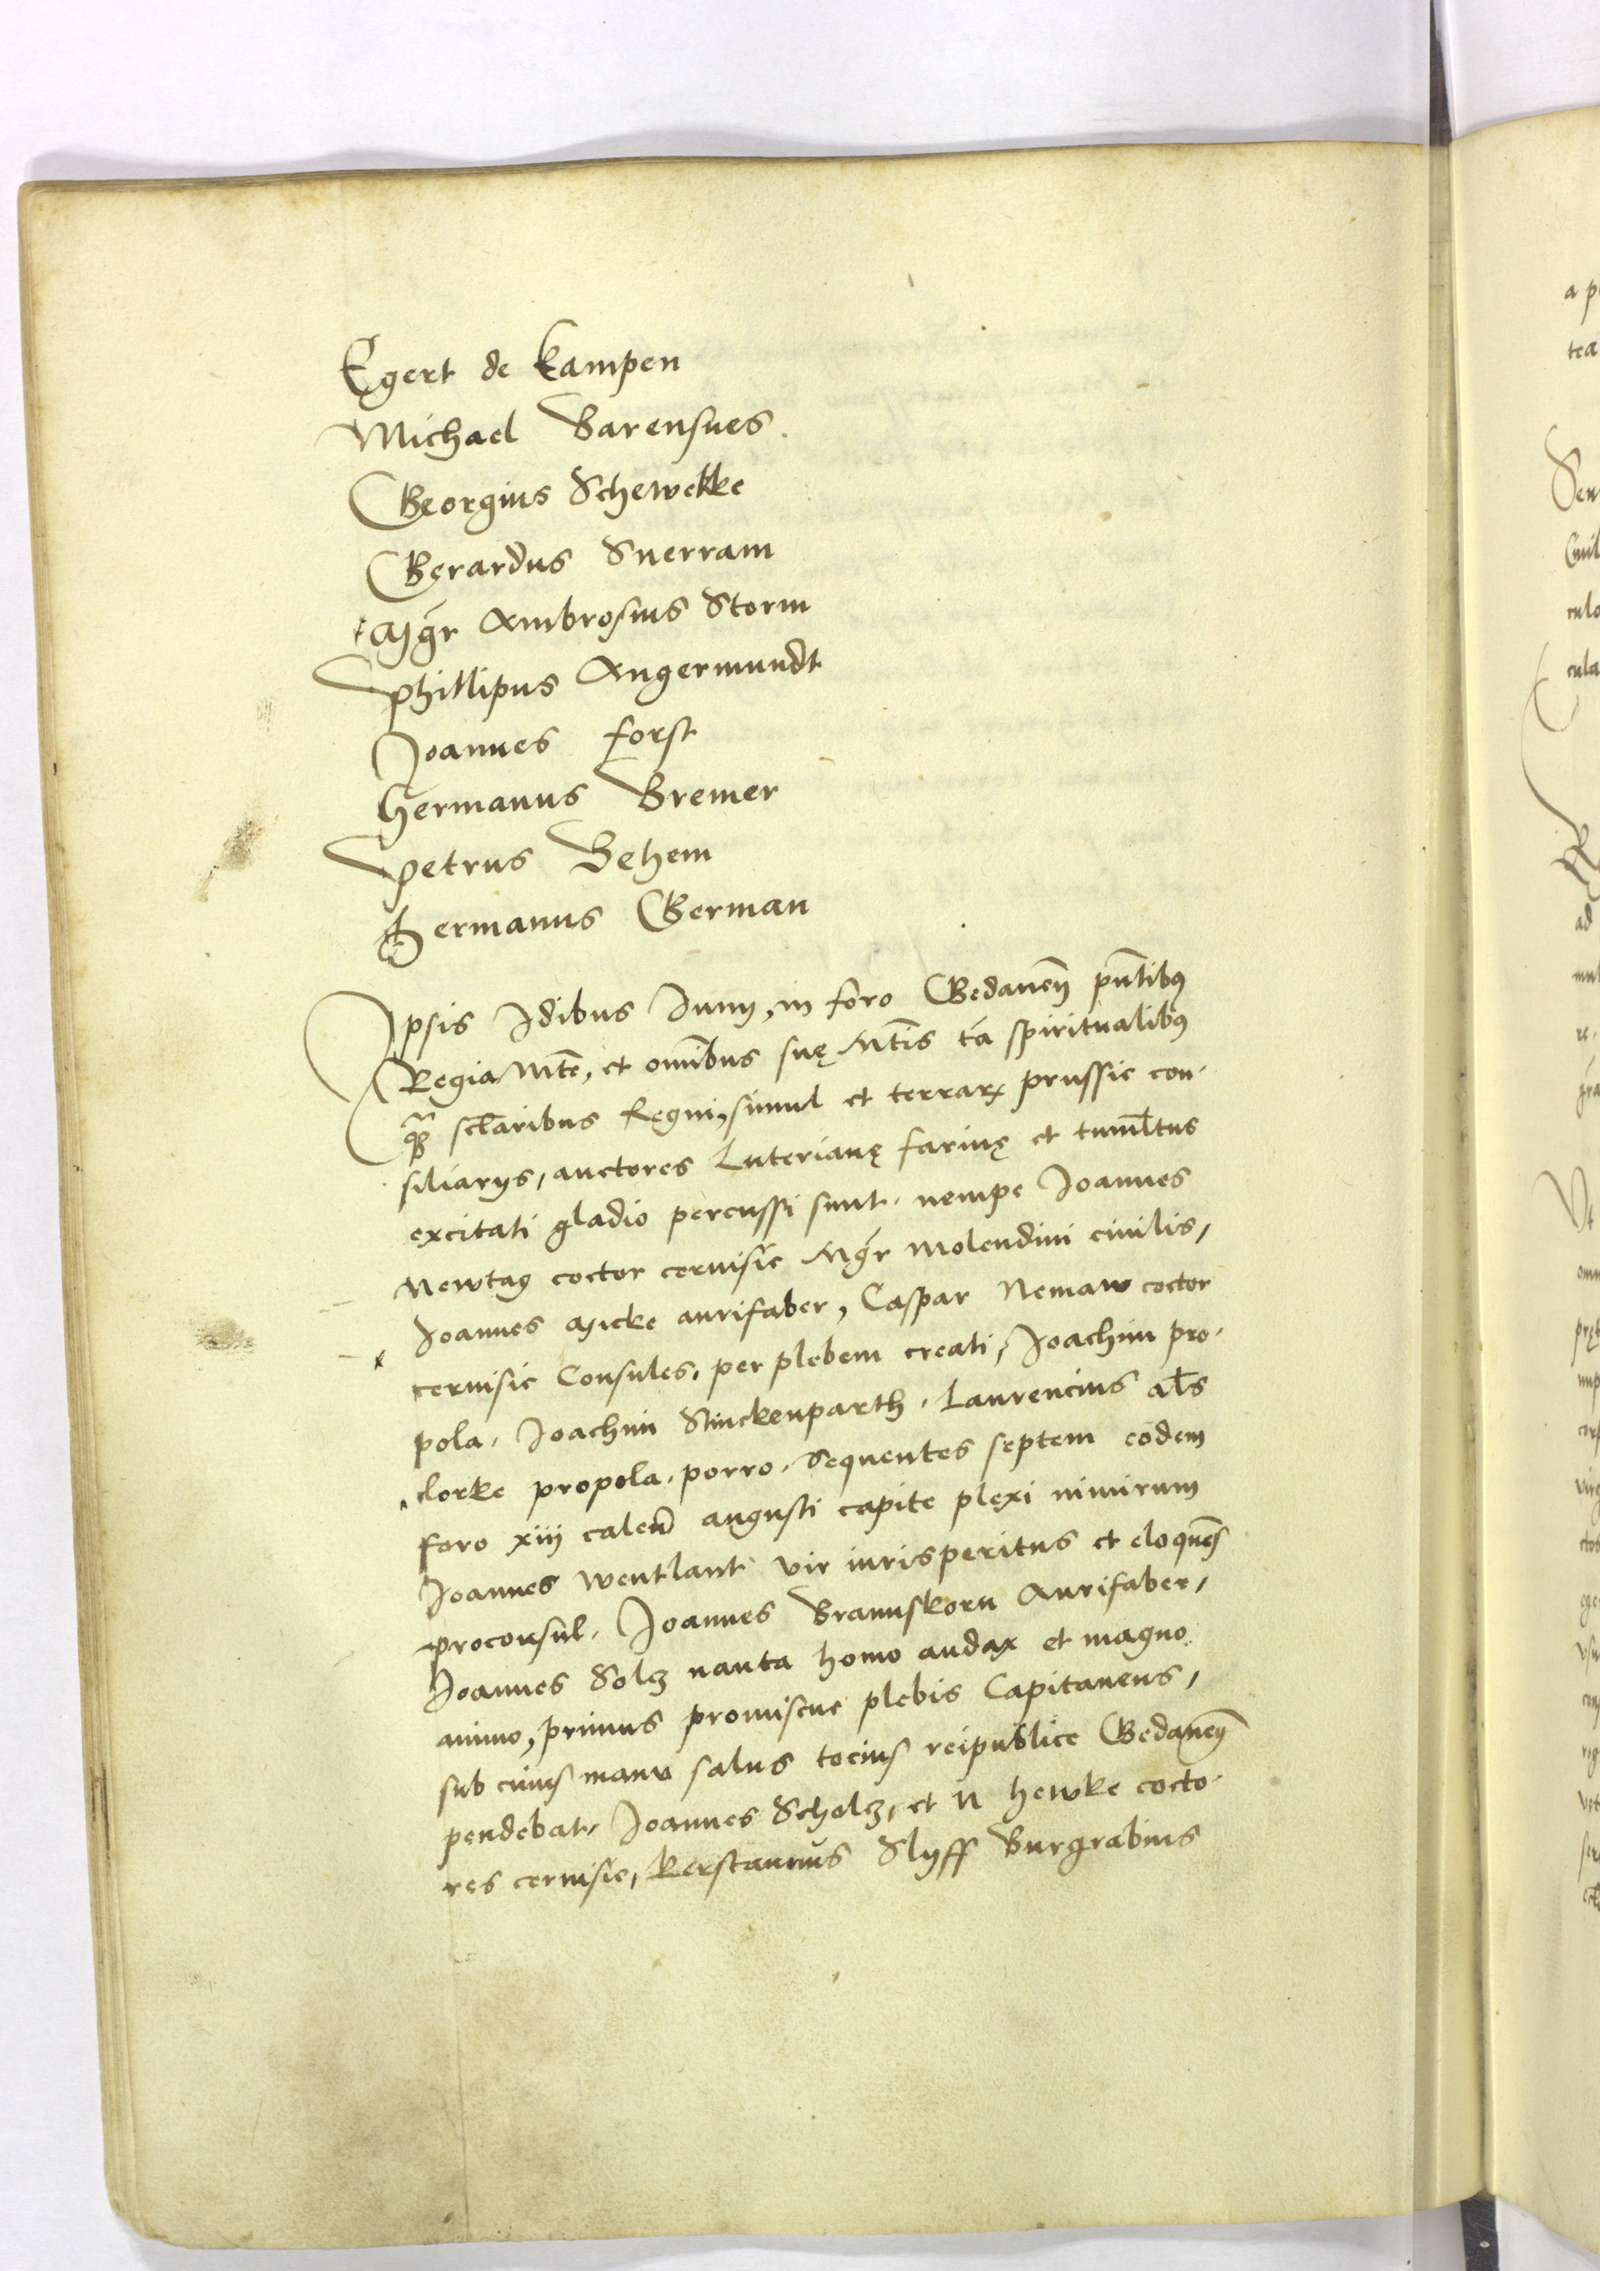 Egert de Kampen
Michael Barensues
Georgius Schewekke
Gerardus Suerram
Mgr̄ Ambrosius Storm
Phillipus Angermundt
Joannes Forst
Hermanus Bremer
Petrus Behem
Germanus German
Ipsis Idibus Junij, in foro Gedaneñ pn̄tibꝰ
Regia Mte, et omībus suę Mtis tā spiritualibꝰ
qᷓ sclaribus Regni, simul et terrarꝝ prussie con-
siliarijs, auctores Luterianę farinę et tumltus
excitati gladio percussi sunt. nempe Joannes
Newtag coctor ceruisie Mgr̄ Molendini ciuilis,
Joannes Micke aurifaber, Caspar Nemaw coctor
ceruisie Consules, per plebem creati, Joachim pro-
pola. Joachim Stinckenparth. Laurencius als
clorke propola. porro. Sequentes septem eodem
foro xiij caleñ augusti capite plexi nimirum
Joannes wentlant vir iurisperitus et eloquēs
proconsul. Joannes Braunskorn Aurifaber,
Joannes Solcz nauta homo audax et magno
animo, primus promiscue plebis Capitaneus,
sub cuius manu salus tocius reipublice Gedaneñ
pendebat, Joannes Scholcz, et N hewke cocto-
res ceruisie, Kerstannus Slyff Burgrabius
a p
tea
Sen
Ciuil
culo
cula
ad